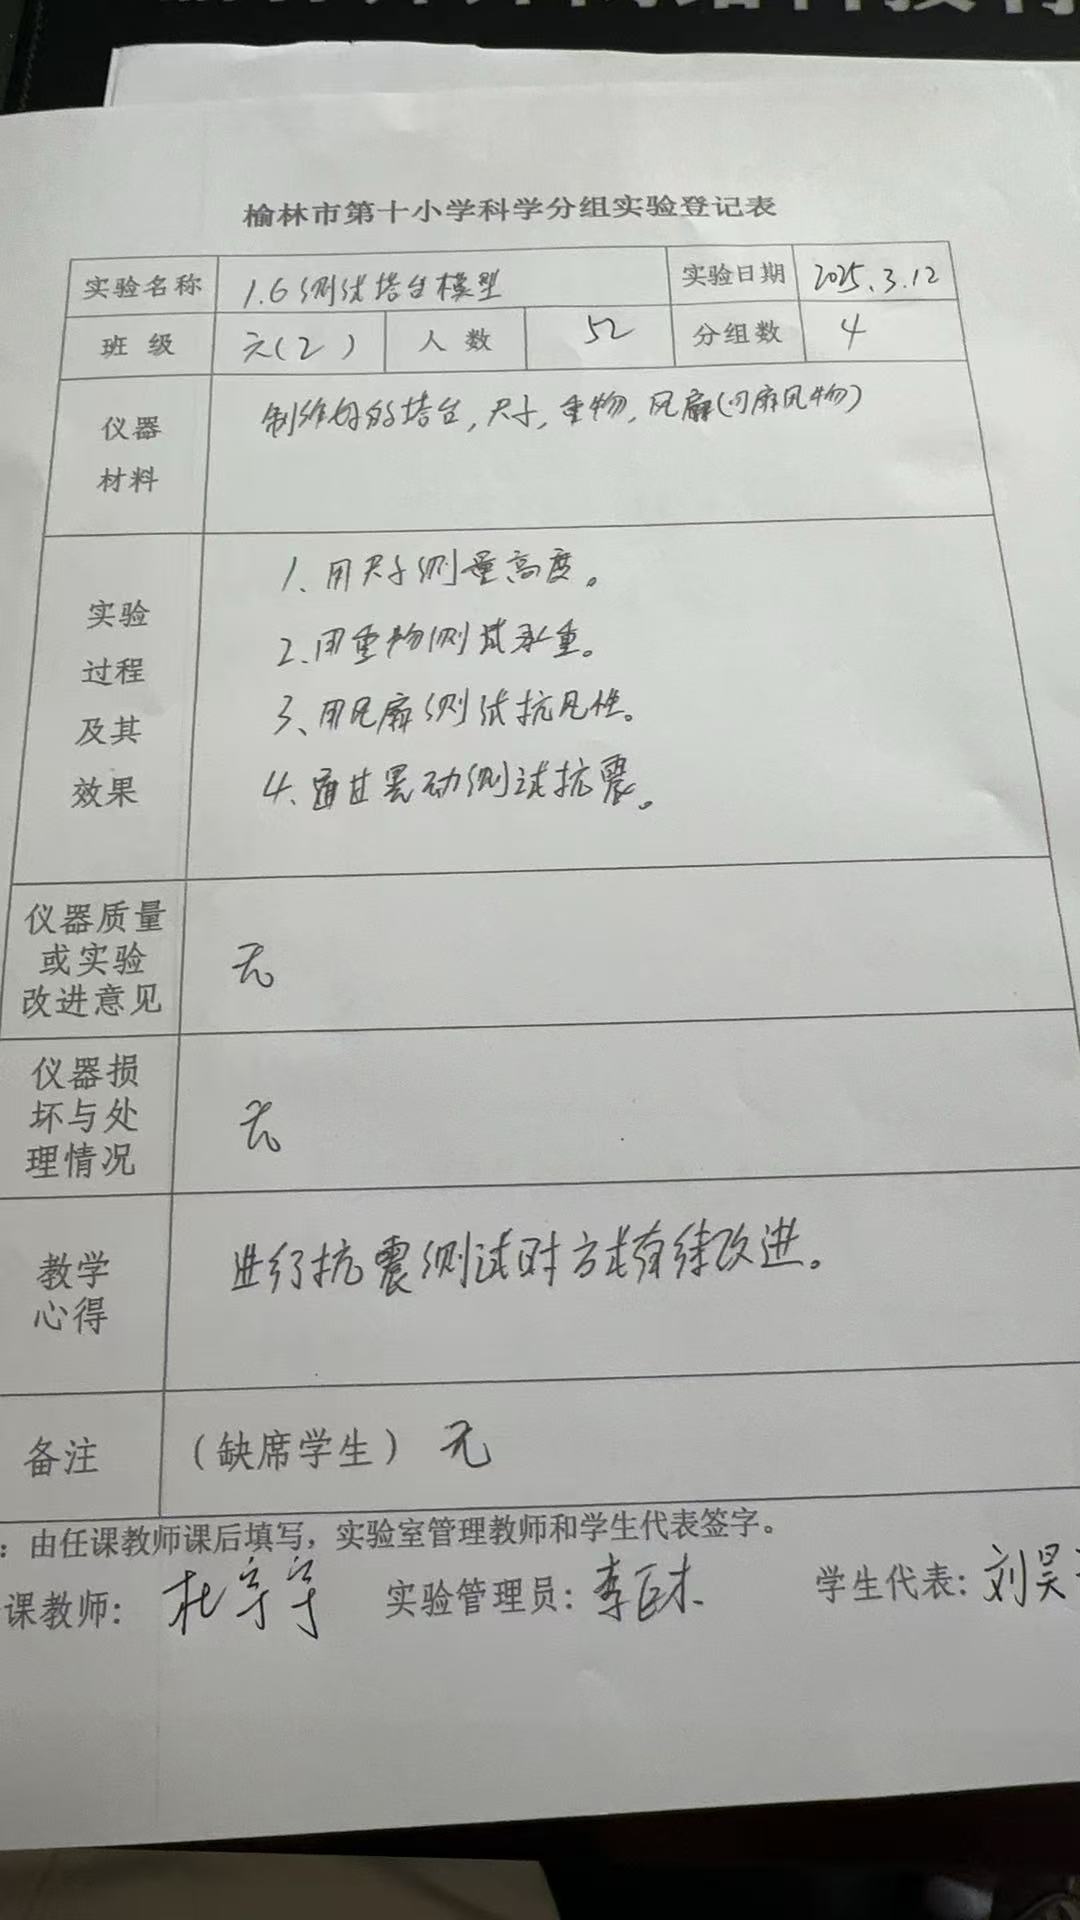 榆林市第十小学科学分组实验登记表
实验名称 1.6 测试塔台模型 实验日期 2025.3.12
班级 六(2) 人数 52 分组数 4
仪器材料 制作好的塔台,尺子,重物,风扇(可扇风物)
实验过程及其效果
1、用尺子测量高度。
2、用重物测试承重。
3、用风扇测试抗风性。
4、通过晃动测试抗震。
仪器质量或实验改进意见 无
仪器损坏与处理情况 无
教学心得 进行抗震测试时方式有待改进。
备注 (缺席学生) 无
:由任课教师课后填写,实验室管理教师和学生代表签字。
课教师: 杜宁宁 实验管理员: 李 学生代表: 刘昊